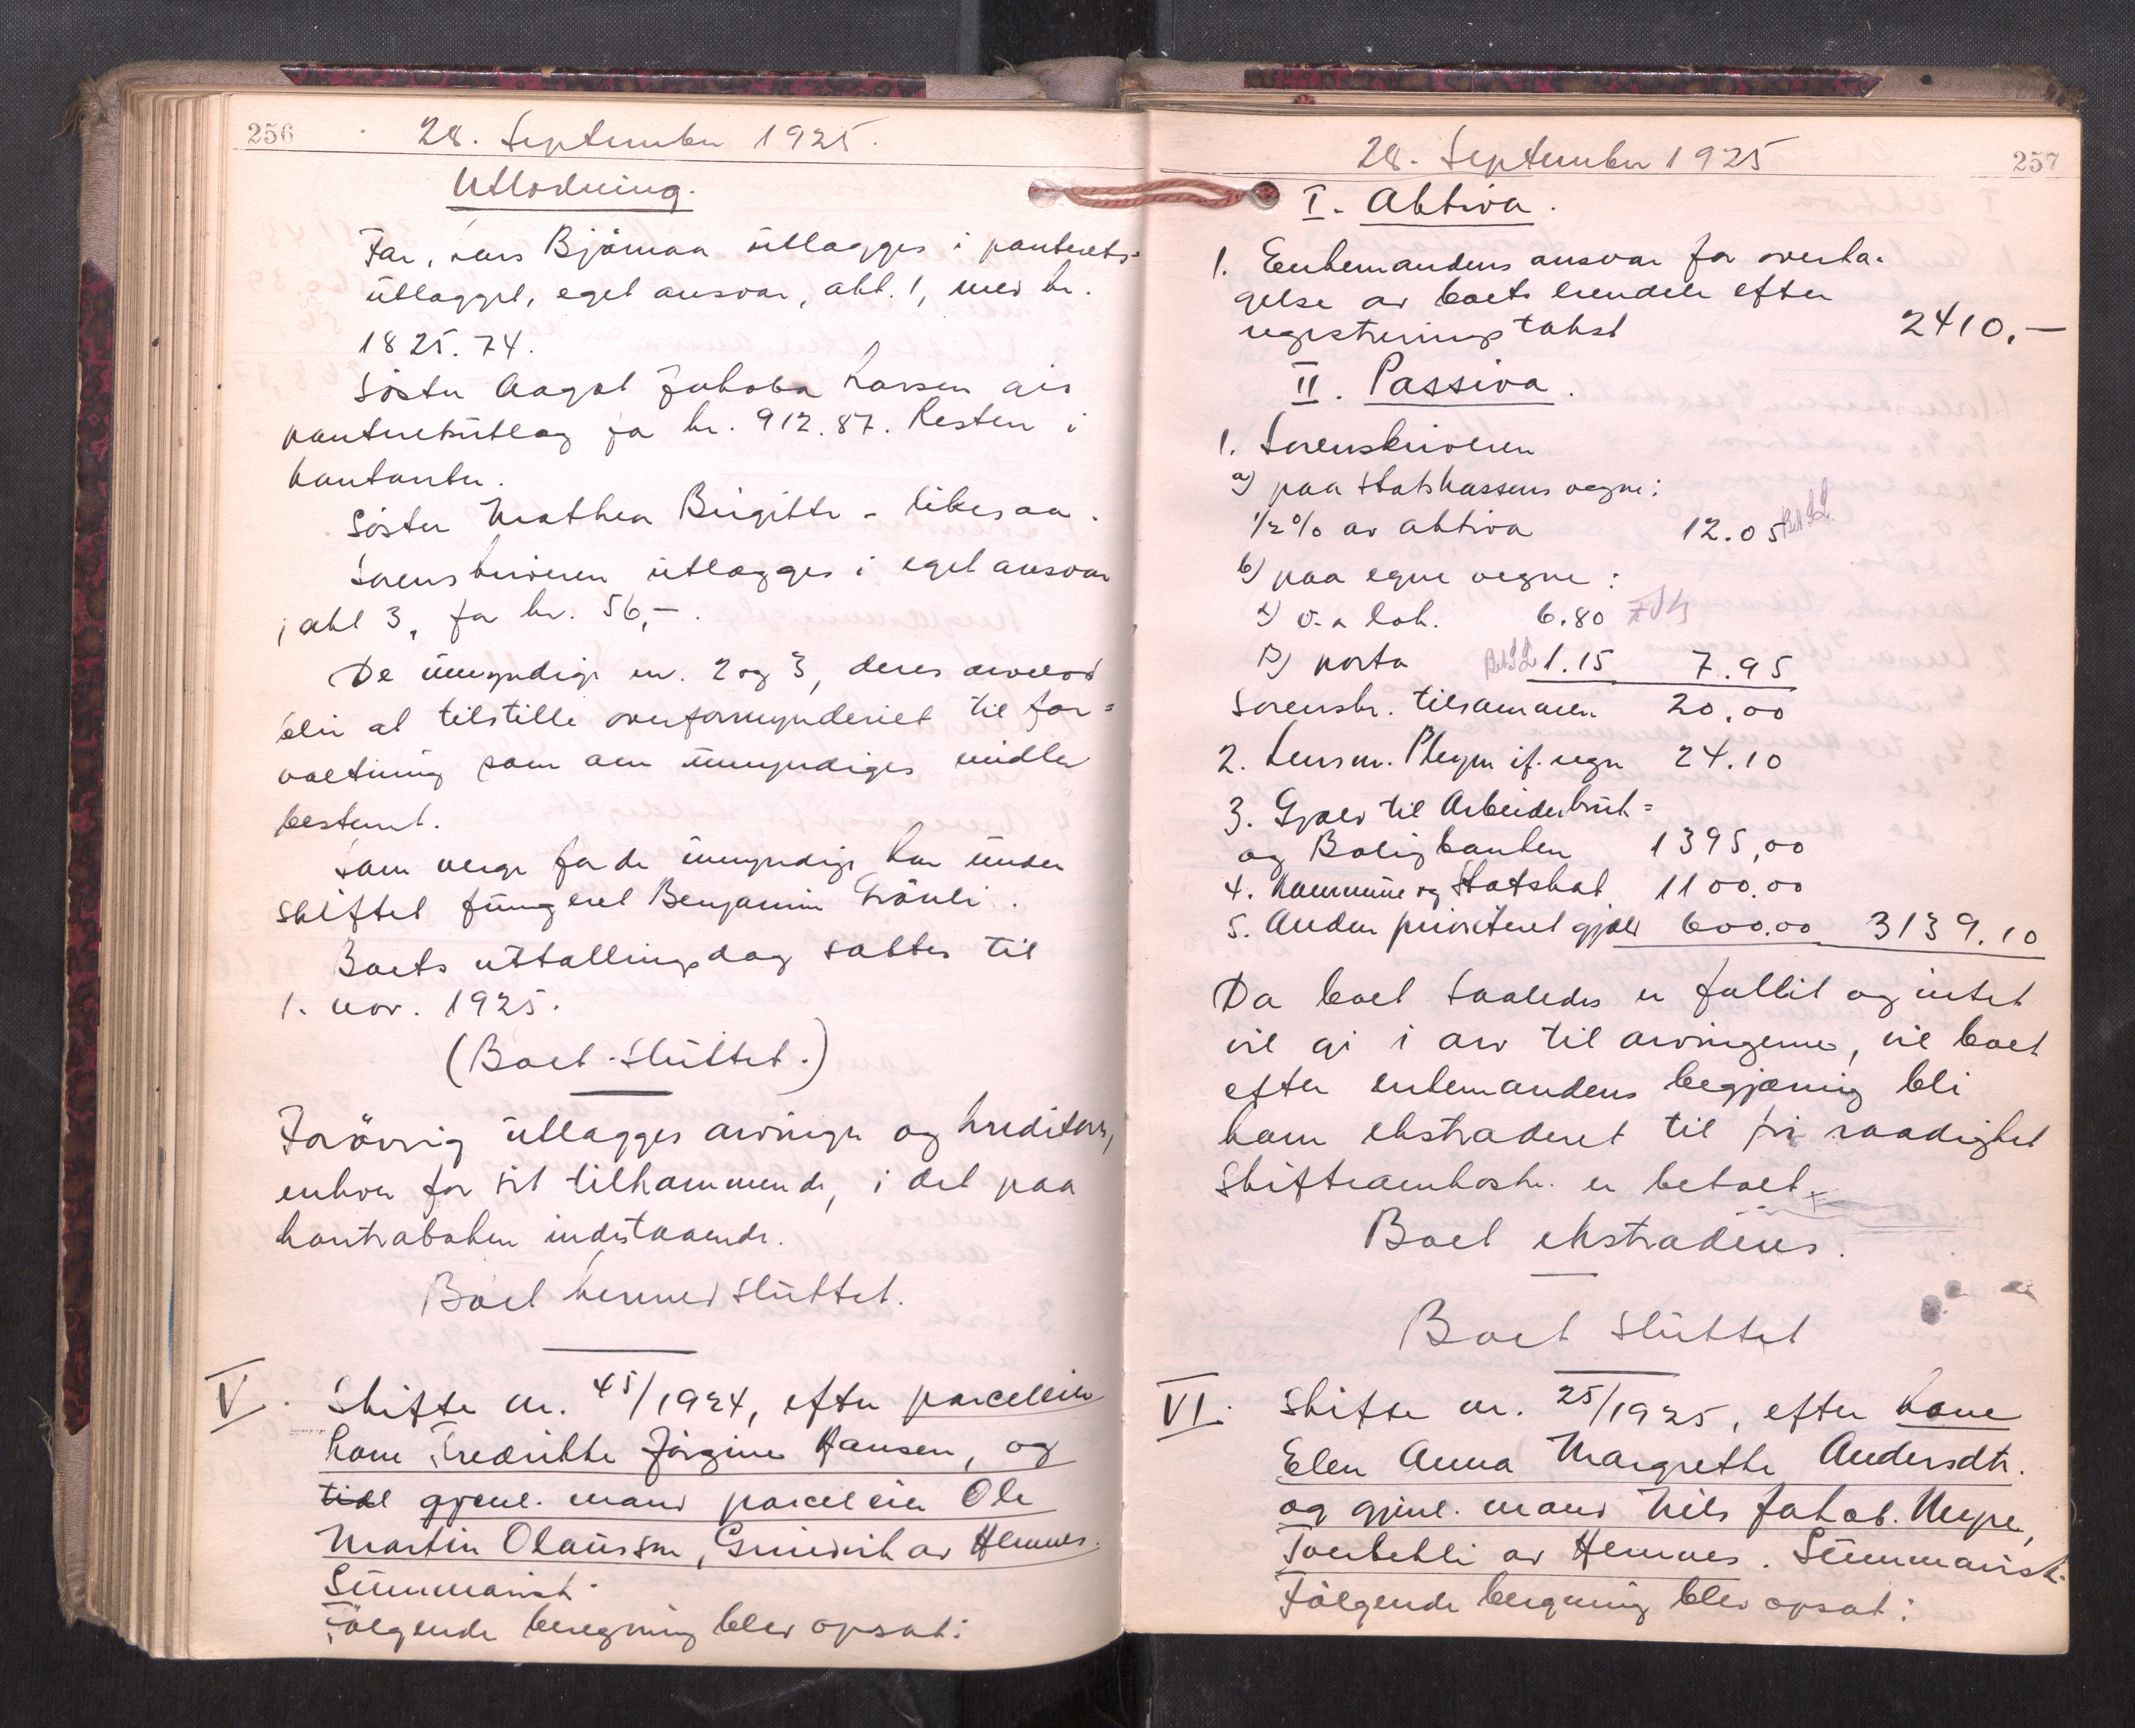 256
28. September 1925.
Utlodning.
Far, Lars Bjömaa utlægges i panterets=
utlægget, eget ansvar, akt. 1, med kr.
1825.74.
Söster Aagot Jakoba Larsen gis
panteretsutlæg for kr. 912.87. Resten i
kontanter.
Söster Mathea Birgitte - likesaa.
Sorenskriveren utlægges i eget ansvar
i akt 3, for kr. 56,-.
De umyndige nr. 2 og 3, deres arvelod
blir at tilstille overformynderiet til for=
valtning som om umyndiges midler
bestemt.
Som verge for de umyndige har under
skiftet fungeret Benjamin Grönli.
Boets uttallingsdag sattes til
1. nov. 1925.
(Boet sluttet.)
Forövrig utlægges arvinger og kreditorer,
enhver for sit tilkommende, i det paa
kontrabøken indestaaende.
Boet hermed sluttet.
V. Skifte nr. 45/1924, efter parceleier
kone Fredrikke Jörgine Hansen, og
gjenl. mand parceleier Ole
Martin Olaussen, av Hemnes.
Summarisk.
Fölgende beregning blev opsat:
28. September 1925
257
I. Aktiva.
1. Enkemandens ansvar for overta-
gelse av boets eiendele efter
registreringstakst 2410,-
II. Passiva.
1. Sorenskriveren
a) paa Statskassens vegne:
1/2% av aktiva 12.05
b) paa egne vegne:
α) v. a lok. 6.80
β) porto 1.15 7.95
Sorenskr. tilsammen 20.00
2. Lensm. if. regn 24.10
3. Gjæld til Arbeiderbruk=
og Boligbanken 1395,00
4. Kommune og Statskat 1100.00
5. Anden prioriteret gjæld 600.00 3139.10
Da boet saaledes er fallit og intet
vil gi i arv til arvingerne, vil boet
efter enkemandens begjæring bli
ham ekstraderet til fri raadighet
Skifteomkostn. er betalt.
Boet ekstraderes.
Boet sluttet
VI. Skifte nr. 25/1925, efter kone
Elen Anna Margrethe Andersdtr.
og gjenl. mand Nils Jakob. Nupe,
av Hemnes. Summarisk.
Fölgende beregning blev opsat: